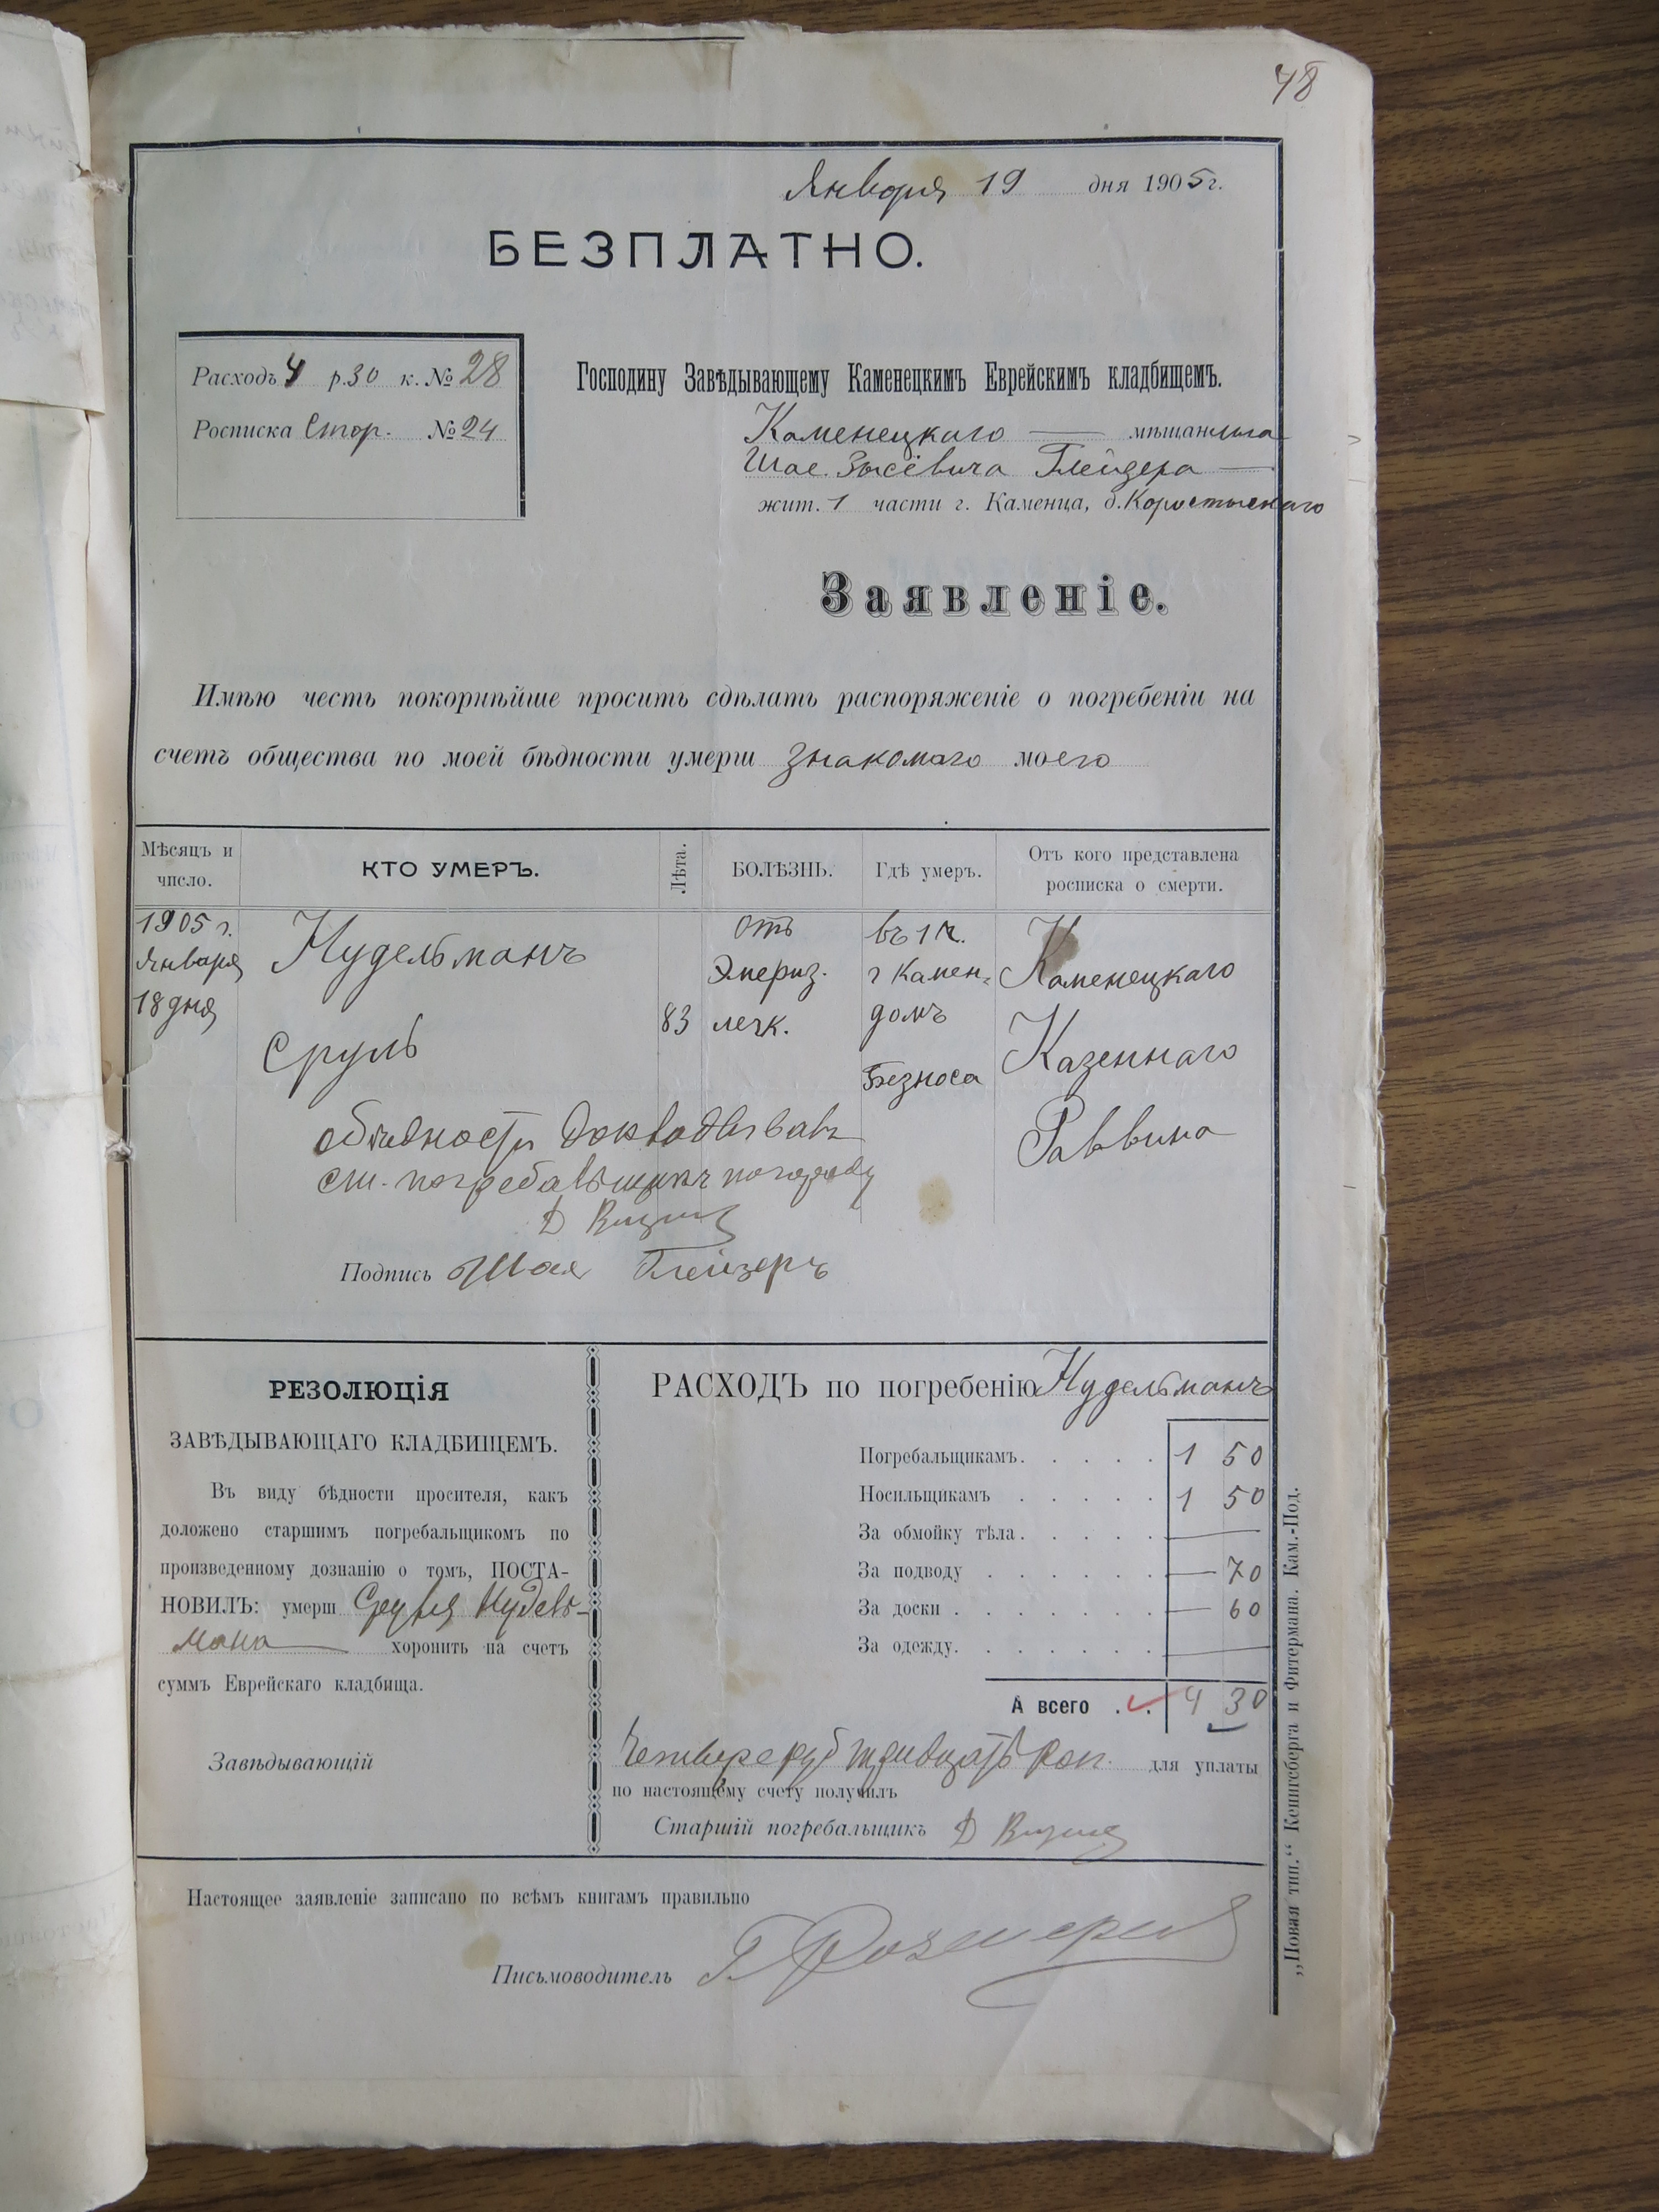 48
Января 19 дня 1905 г.
БЕЗПЛАТНО.
Расходъ 4 р. 30 к. № 28
Росписка Стор. № 24
Господину Завѣдывающему Каменецкимъ Еврейскимъ кладбищемъ.
Каменецкаго — мѣщанина
Шае. Зысевича Глейзера —
жит. 1 части г. Каменца, д.
Заявленіе.
Имѣю честь покорнѣйше просить сдѣлать распоряженіе о погребеніи на
счетъ общества по моей бѣдности умерш знакомаго моего
Мѣсяцъ и число.
КТО УМЕРЪ.
Лѣта.
БОЛѢЗНЬ.
Гдѣ умеръ.
Отъ кого представлена росписка о смерти.
1905 г.
Января
18 дня
Нудельманъ
Сруль
83
отъ
лечк.
въ 1 ч.
г Камен.
домъ
Безноса
Каменецкаго
Казеннаго
Раввина
о бѣдности докладывалъ
ст. погребальщикъ
Подпись Шая Глейзеръ
РЕЗОЛЮЦІЯ
ЗАВѢДЫВАЮЩАГО КЛАДБИЩЕМЪ.
Въ виду бѣдности просителя, какъ
доложено старшимъ погребальщикомъ по
произведенному дознанію о томъ, ПОСТА-
НОВИЛЪ: умерш Сруля Нудель-
мана — хоронить на счетъ
суммъ Еврейскаго кладбища.
Завѣдывающій
РАСХОДЪ по погребенію Нудельманъ
Погребальщикамъ. . . . . 1 50
Носильщикамъ . . . . . 1 50
За обмойку тѣла. . . . . —
За подводу . . . . . . — 70
За доски . . . . . . . — 60
За одежду. . . . . . . —
А всего . . 4 30
Четыре руб тридцать коп. для уплаты
по настоящему счету получилъ
Старшій погребальщикъ Д
Настоящее заявленіе записано по всѣмъ книгамъ правильно
Письмоводитель Г.
„Новая тип.“ Кенигсберга и Фитермана. Кам.-Под.